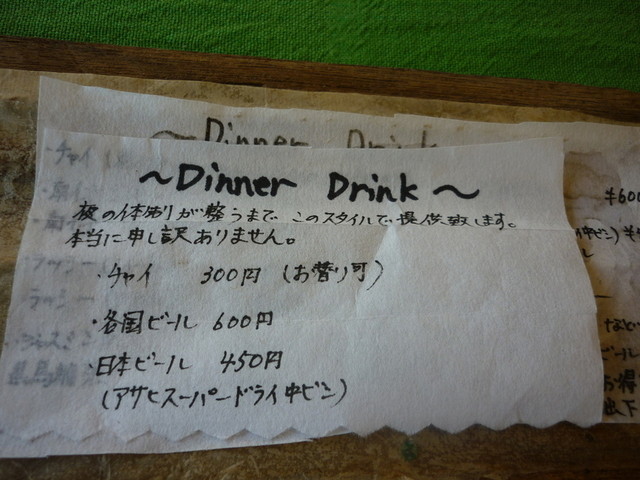 ~Dinner Drink~
夜の体制が整うまで このスタイルで提供致します。
本当に申し訳ありません。
・チャイ 300円 (お替り可)
・各国ビール 600円
・日本ビール 450円
(アサヒスーパードライ中ビン)
~Dinner Drink
・チャイ
ラッシー
¥600
ビール